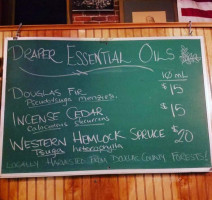 Draper Essential Oils
10 mL
Douglas Fir $15
Pseudotsuga menziesii
Incense Cedar $15
Calocedrus decurrens
Western Hemlock Spruce $20
Tsuga heterophylla
Locally Harvested from Douglas County Forests!